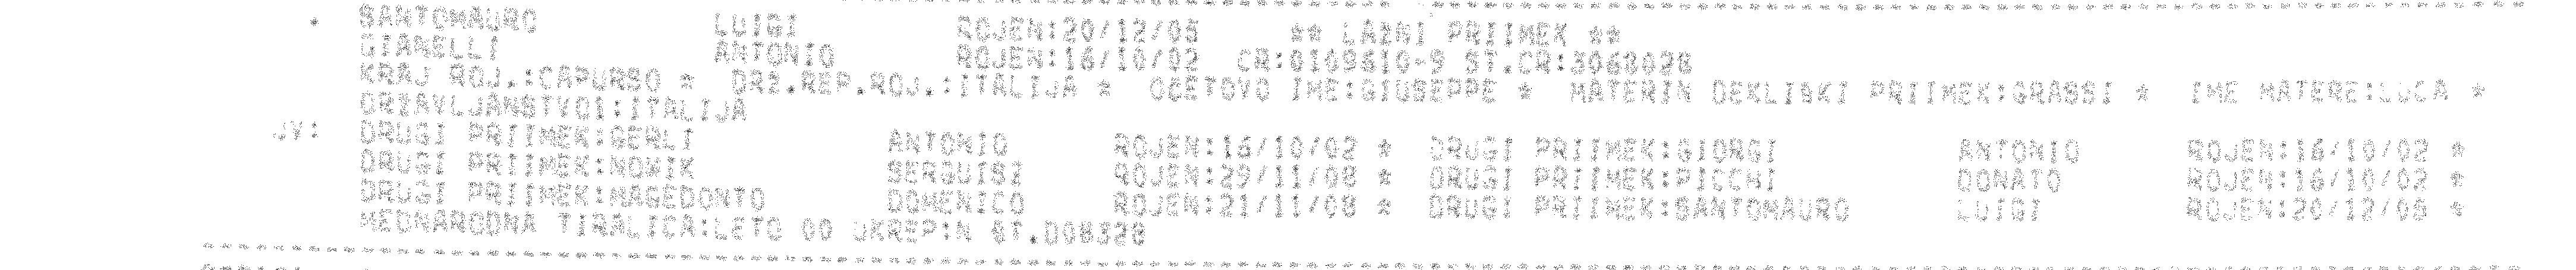 * SANTOMAURO LUIGI ROJEN:20/12/05 ** LAZNI PRIIMEK **
GIANELLI ANTONIO ROJEN:16/10/02 CR:0109610-9 ST.CR:3068028
KRAJ ROJ.:CAPURSO * DRZ.REP.ROJ.:ITALIJA * OCETOVO IME:GIUSEPPE * MATERIN DEKLISKI PRIIMEK:GRASSI * IME MATERE:LUCA *
DRZAVLJANSTVO1:ITALIJA
JV: DRUGI PRIIMEK:GERLI ANTONIO ROJEN:16/10/02 * DRUGI PRIIMEK:GIORGI ANTONIO ROJEN:16/10/02 *
DRUGI PRIIMEK:NOVIK SERGUISI ROJEN:29/11/08 * DRUGI PRIIMEK:PICCHI DONATO ROJEN:16/10/02 *
DRUGI PRIIMEK:MAGEDONTO DOMENICO ROJEN:21/11/08 * DRUGI PRIIMEK:SANTOMAURO LUIGI ROJEN:20/12/05 *
MEDNARODNA TIRALICA:LETO 00 UKREP:N ST.D08320